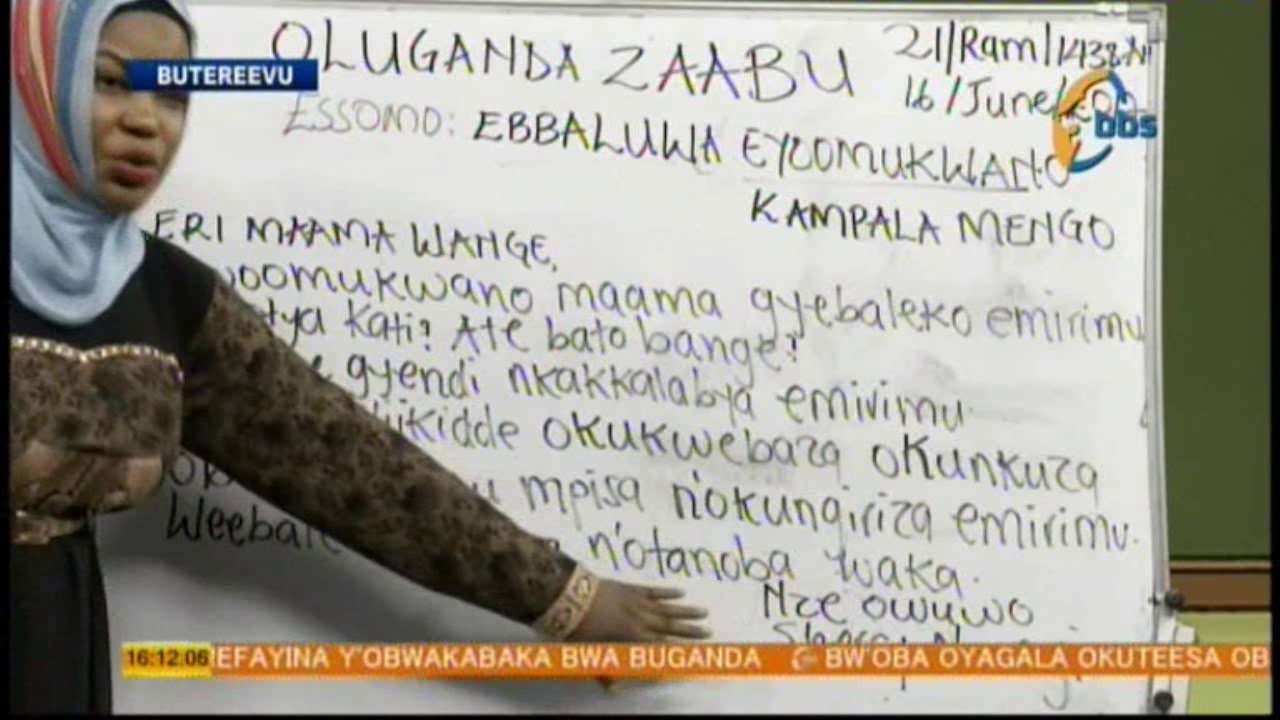 BUTEREEVU
OLUGANDA ZAABU
21/Ram/1438AH
16/June/
bbs
ESSOMO: EBBALUWA EY'OOMUKWANO
KAMPALA MENGO
ERI MAAMA WANGE,
maama gyebaleko emirimu
kati? Ate bato bange?
gyendi nkakkalabya emirimu.
okukwebaza okunkuza
mpisa n'okungiriza emirimu.
n'otanoba waka.
Nze owuwo
16:12:06 EFAYINA Y'OBWAKABAKA BWA BUGANDA BW'OBA OYAGALA OKUTEESA OB